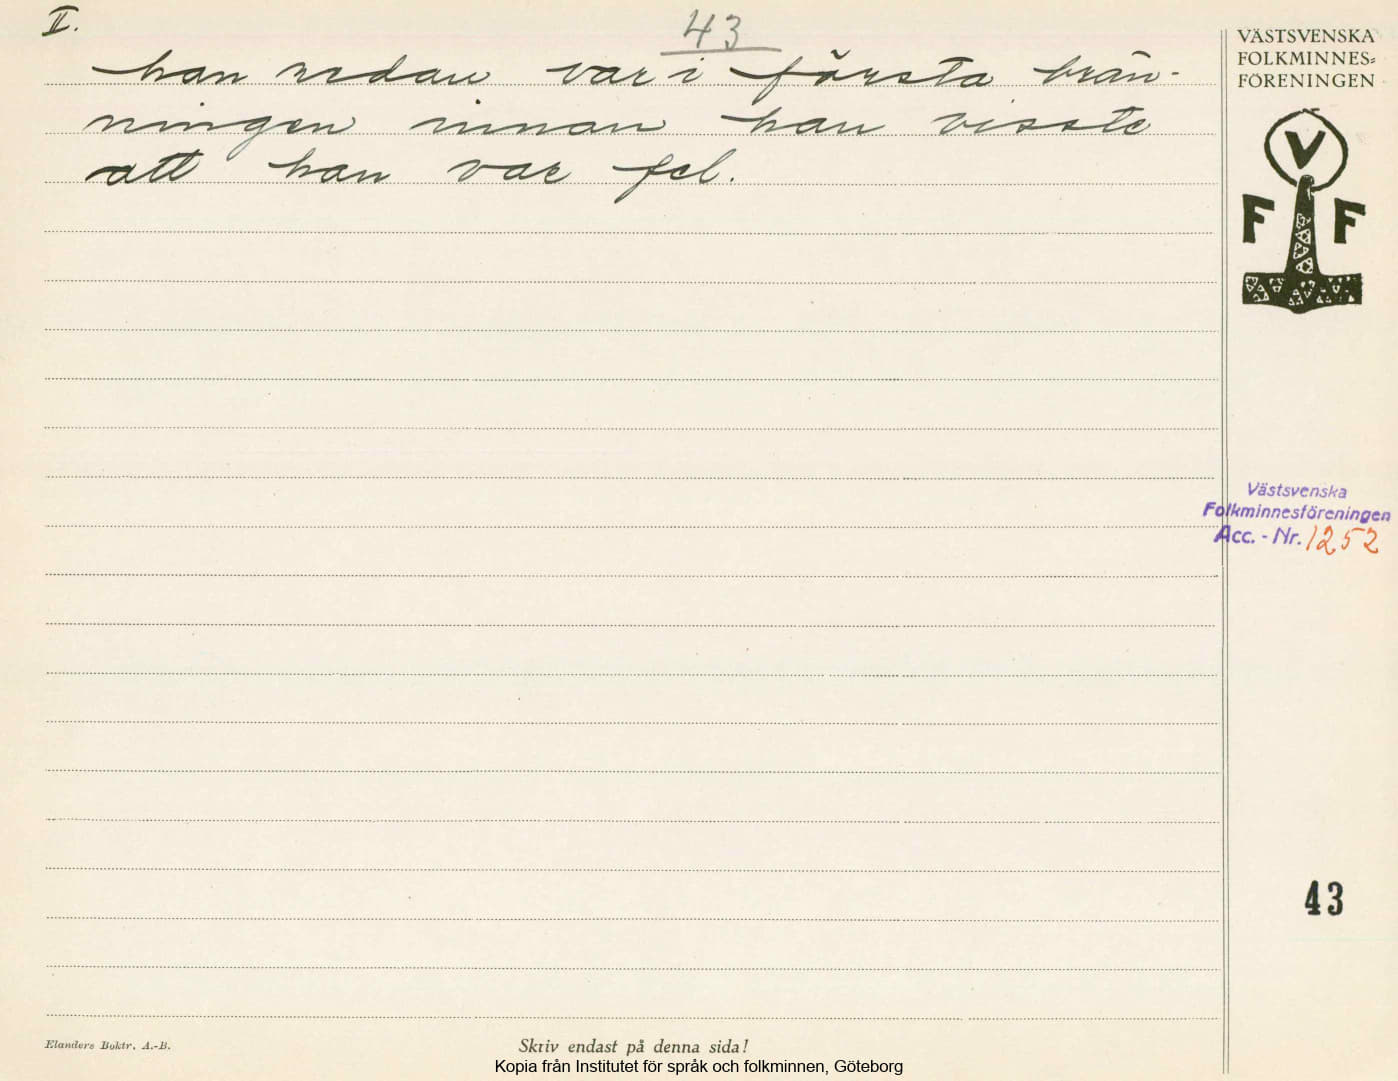 II.
43
han redan var i första brän-
ningen innan han visste
att han var fel.
VÄSTSVENSKA
FOLKMINNES=
FÖRENINGEN
V
F F
Västsvenska
Folkminnesföreningen
Acc. - Nr. 1252
43
Elanders Boktr. A.-B.
Skriv endast på denna sida!
Kopia från Institutet för språk och folkminnen, Göteborg